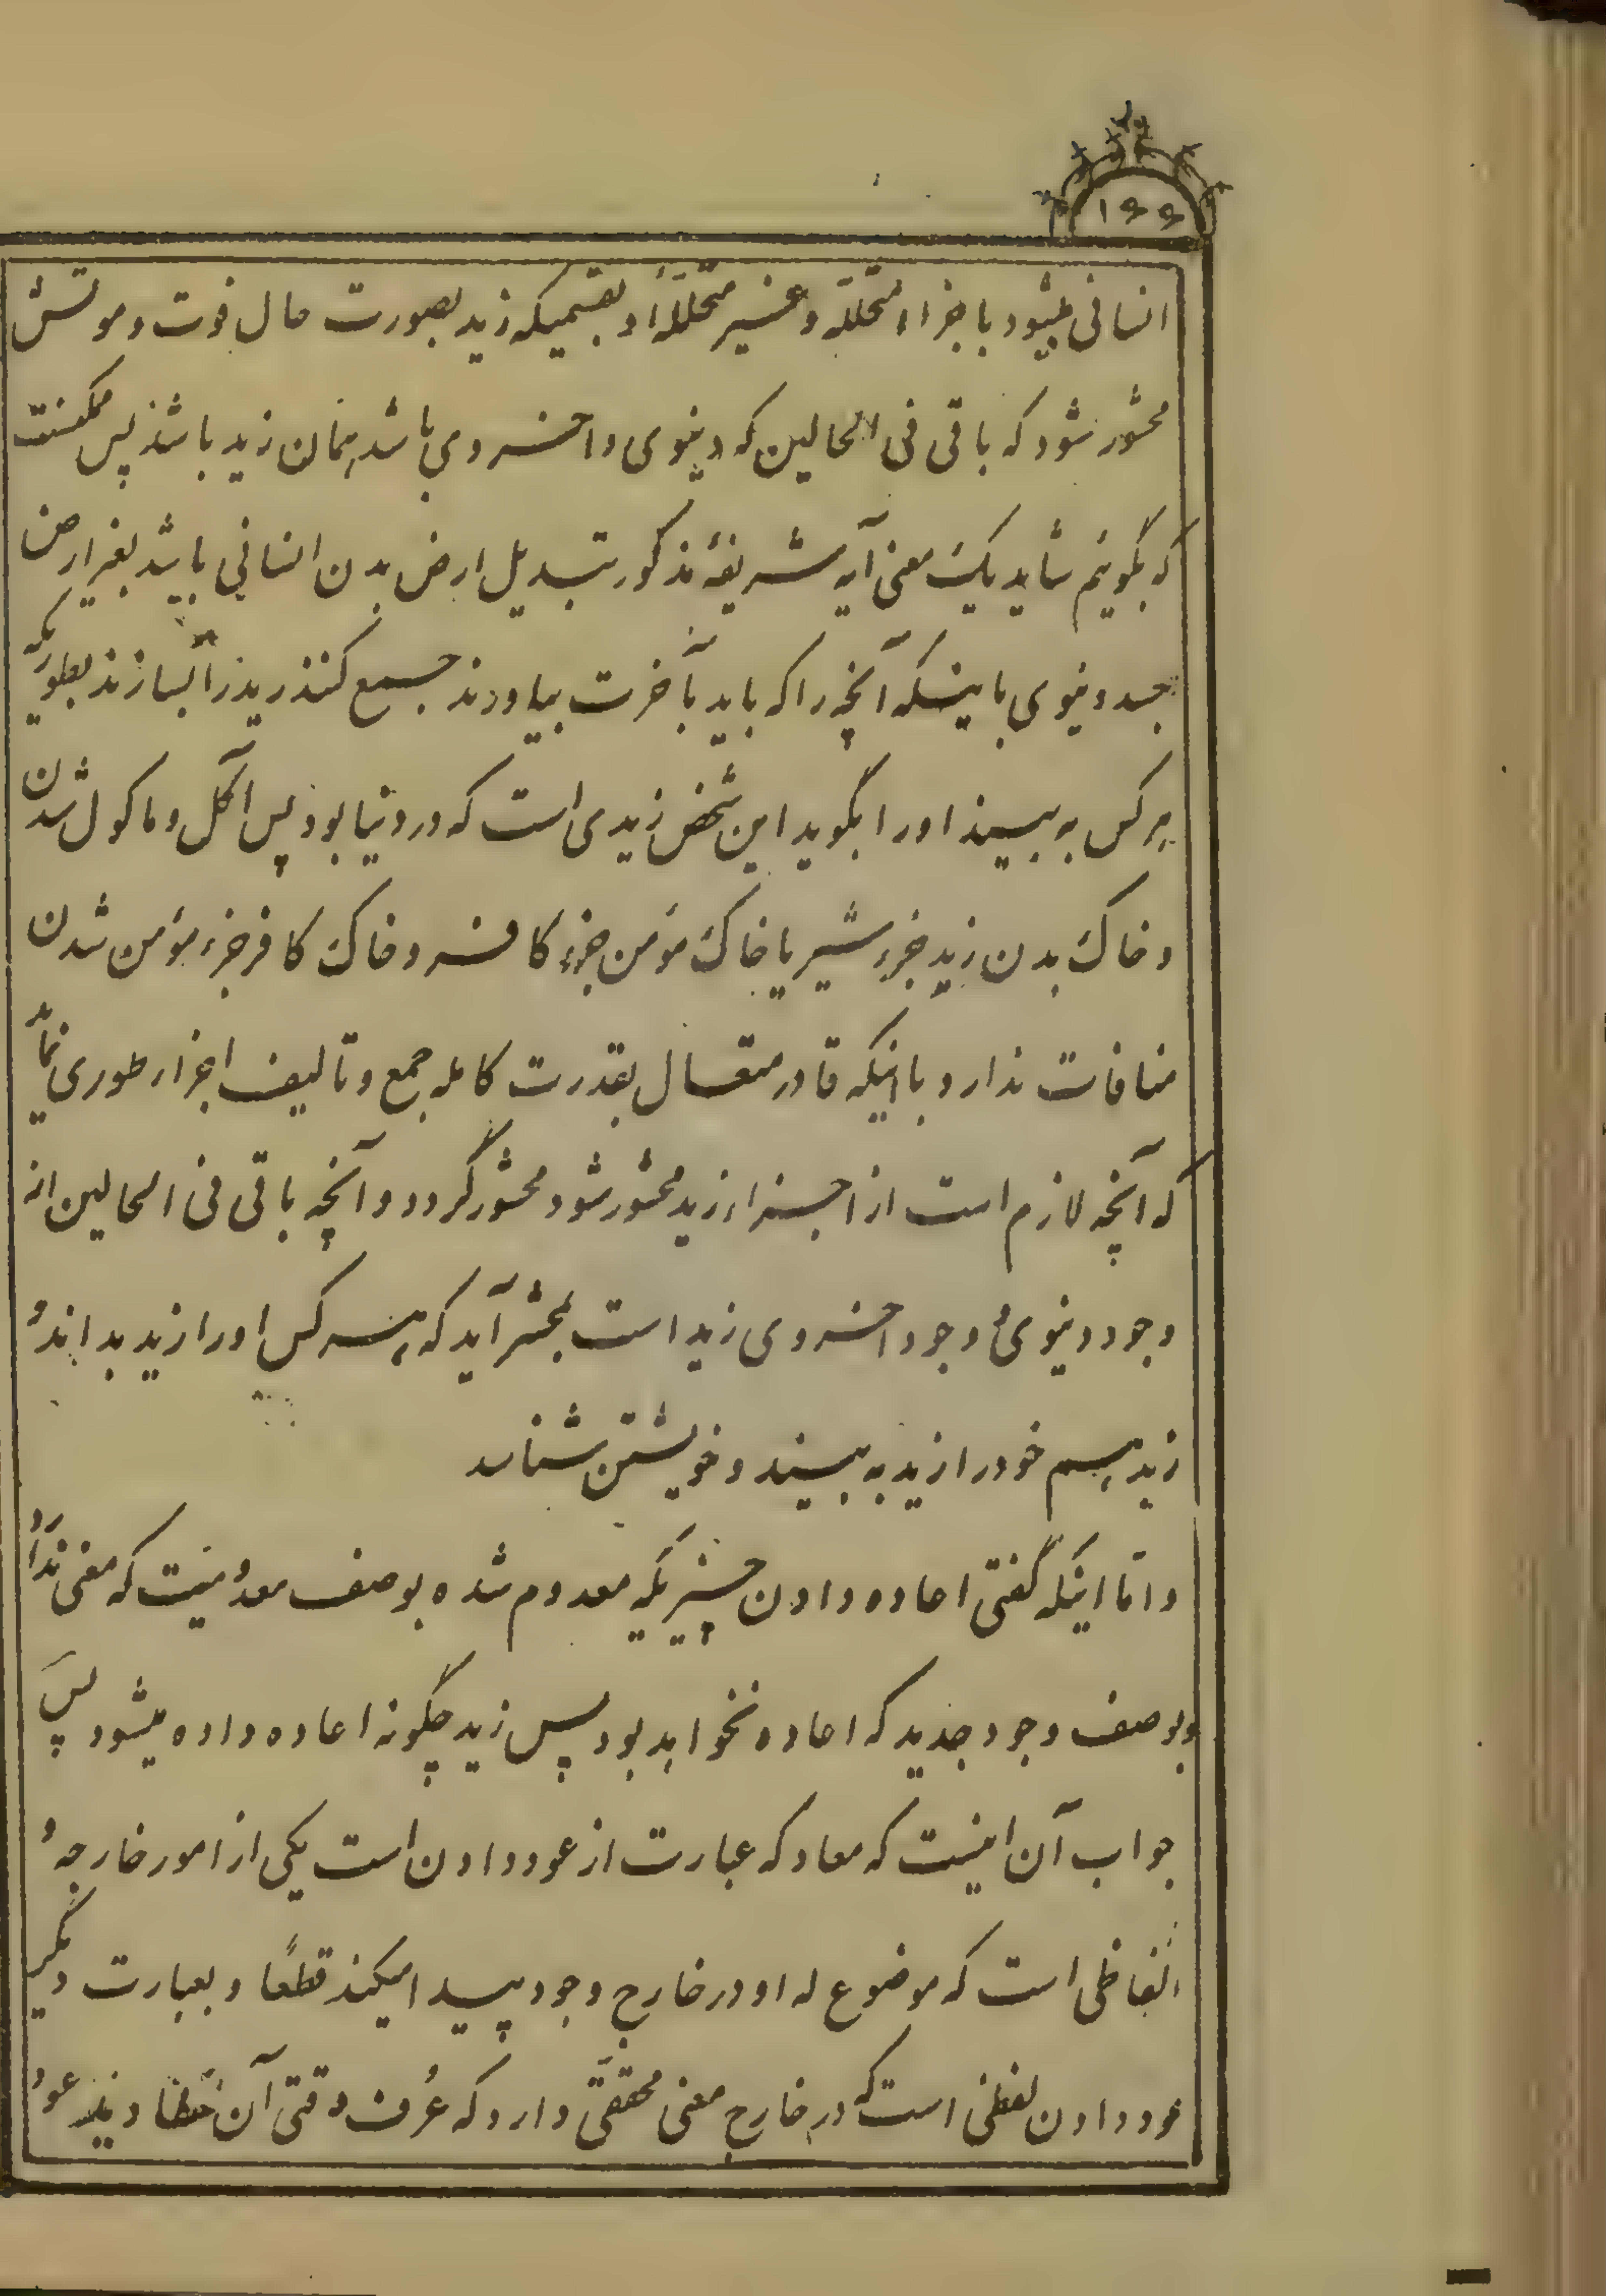 ۱۶۶
انسانی میشود باجزاء متحلّله و غیر متحلّلهٔ او بقسمیکه زید بصورت حال فوت و موتش
محشور شود که باقی فی الحالین که دنیوی و اخروی باشد همان زید باشد پس ممکنست
که بگوئیم شاید یک معنی آیه شریفهٔ مذکور تبدیل ارض بدن انسانی باشد بغیر ارض
جسد دنیوی باینکه آنچه را که باید بآخرت بیاورند جمع کنند زید را بسازند بطوریکه
هرکس به بیند اورا بگوید این شخص زیدی است که در دنیا بود پس آکل و ماکول شدن
و خاک بدن زید جزء شیر یا خاک مؤمن جزء کافر و خاک کافر جزء مؤمن شدن
منافات ندارد با اینکه قادر متعال بقدرت کامله جمع و تالیف اجزاء طوری نماید
که آنچه لازم است از اجزاء زید محشور شود محشور گردد و آنچه باقی فی الحالین از
وجود دنیوی و وجود اخروی زید است بمحشر آید که هرکس اورا زید بداند و
زید هم خود را زید به بیند و خویشتن شناسد
و امّا اینکه گفتی اعاده دادن چیزیکه معدوم شده بوصف معدومیت که معنی ندارد
و بوصف وجود جدید که اعاده نخواهد بود پس زید چگونه اعاده داده میشود پس
جواب آن اینست که معاد که عبارت از عود دادن است یکی از امور خارجه و
الفاظی است که موضوع له او در خارج وجود پیدا میکند قطعًا و بعبارت دیگر
عود دادن لفظی است که در خارج معنی محقّقی دارد که عُرف وقتی آن دیدند عود